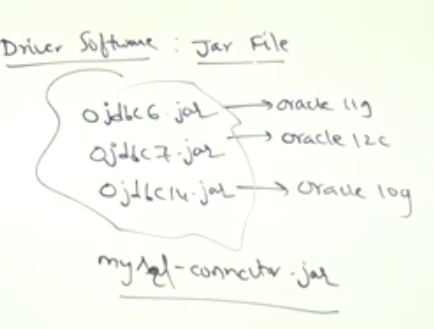 Driver Software : Jar File
Ojdbc6.jar → oracle 11g
Ojdbc7.jar → oracle 12c
Ojdbc14.jar → oracle 10g
mysql-connector.jar